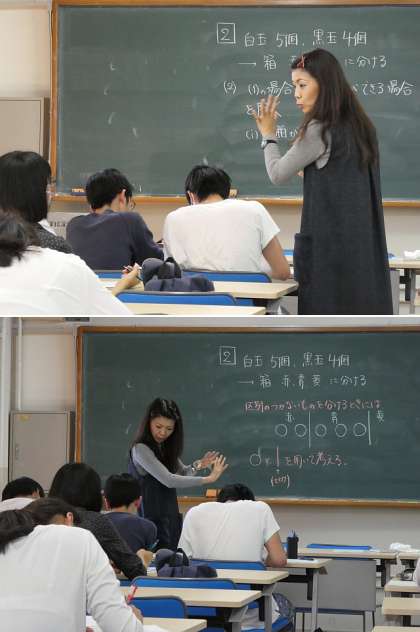 2 白玉 5個、黒玉 4個
→ 箱 に分ける
(2) (1)の場合 できる場合
を除
(i) 箱が
2 白玉 5個、黒玉 4個
→ 箱 赤、青、黄 に分ける
区別のつかないものを分けるときには
赤 青 黄
○○|○○○|
○と | を用いて考える.
(仕切り)